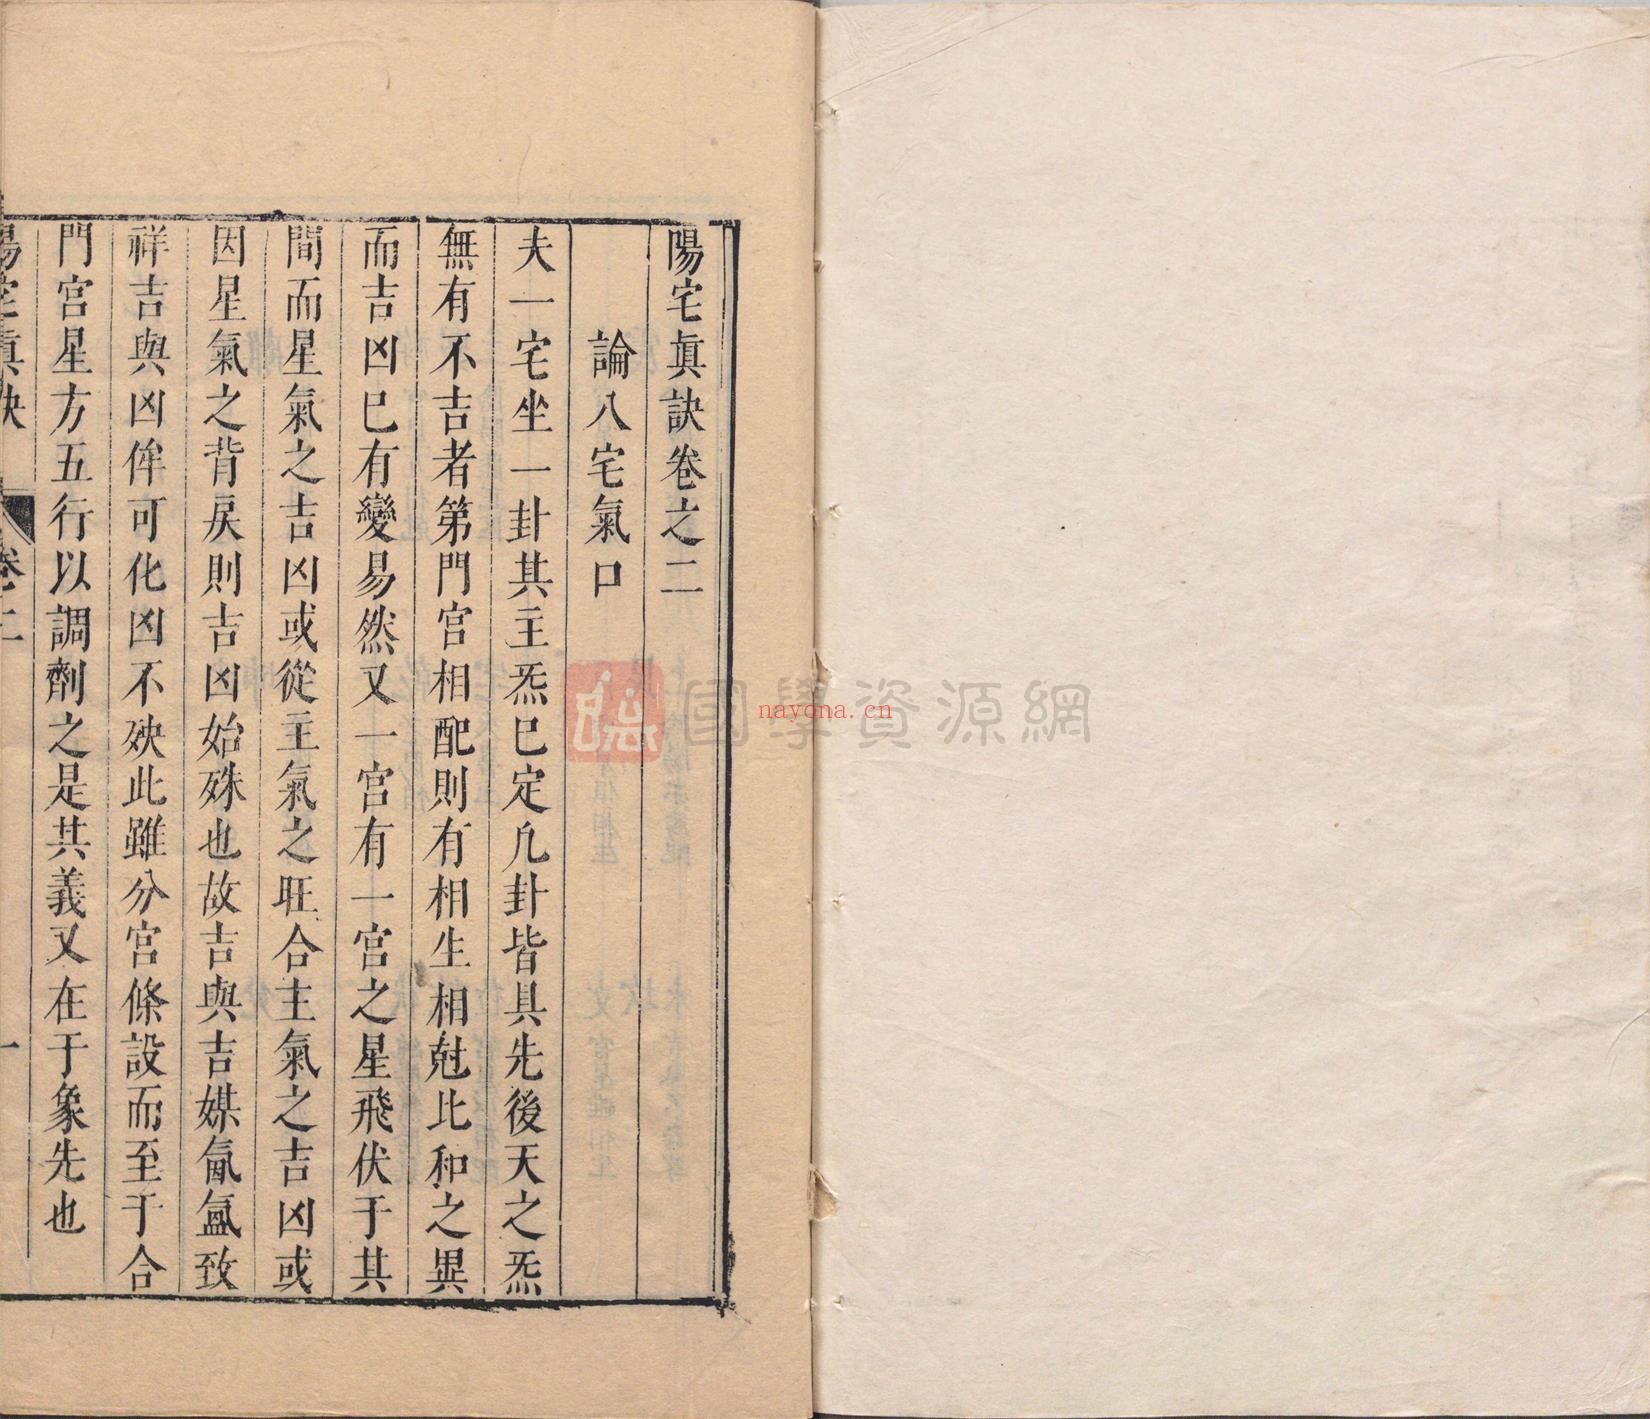 陽宅眞訣卷之二
論八宅氣口
夫一宅坐一卦其主炁已定凢卦皆具先後天之炁
無有不吉者第門宮相配則有相生相尅比和之異
而吉凶巳有變易然又一宮有一宮之星飛伏于其
間而星氣之吉凶或從主氣之旺合主氣之吉凶或
因星氣之背戾則吉凶始殊也故吉與吉媒氤氲致
祥吉與凶侔可化凶不殃此雖分宮條設而至于合
門宮星方五行以調劑之是其義又在于象先也
陽宅眞訣
卷二
一
國學資源網
nayona.cn